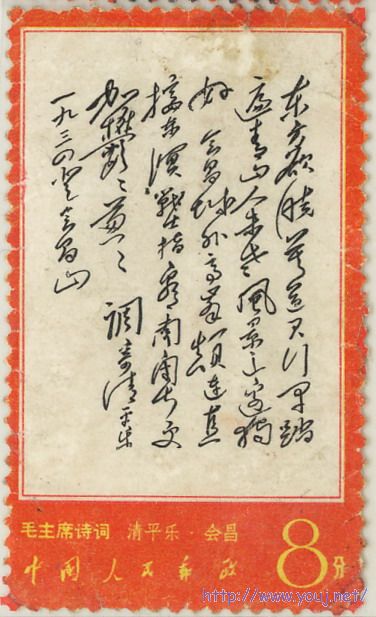 东方欲晓莫道君行早踏
遍青山人未老風景这边独
好 会昌城外高峰颠连直
接东溟戰士指看南粤更
加鬱々葱々 調寄清平乐
一九三四登会昌山
毛主席诗词 清平乐·会昌
中国人民邮政
8分
http://www.youj.net/